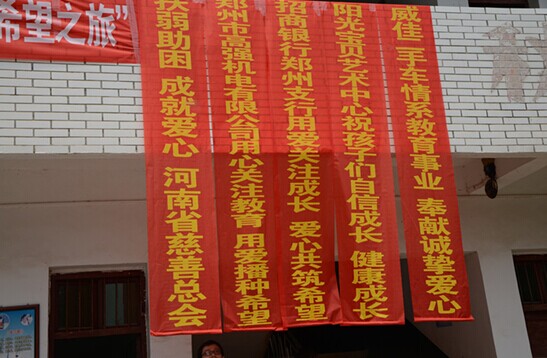 希望之旅”
扶弱助困 成就爱心 河南省慈善总会
郑州市高强机电有限公司用心关注教育 用爱播种希望
招商银行郑州支行用爱关注成长 爱心共筑希望
阳光宝贝艺术中心祝孩子们自信成长 健康成长
威佳二手车情系教育事业 奉献诚挚爱心